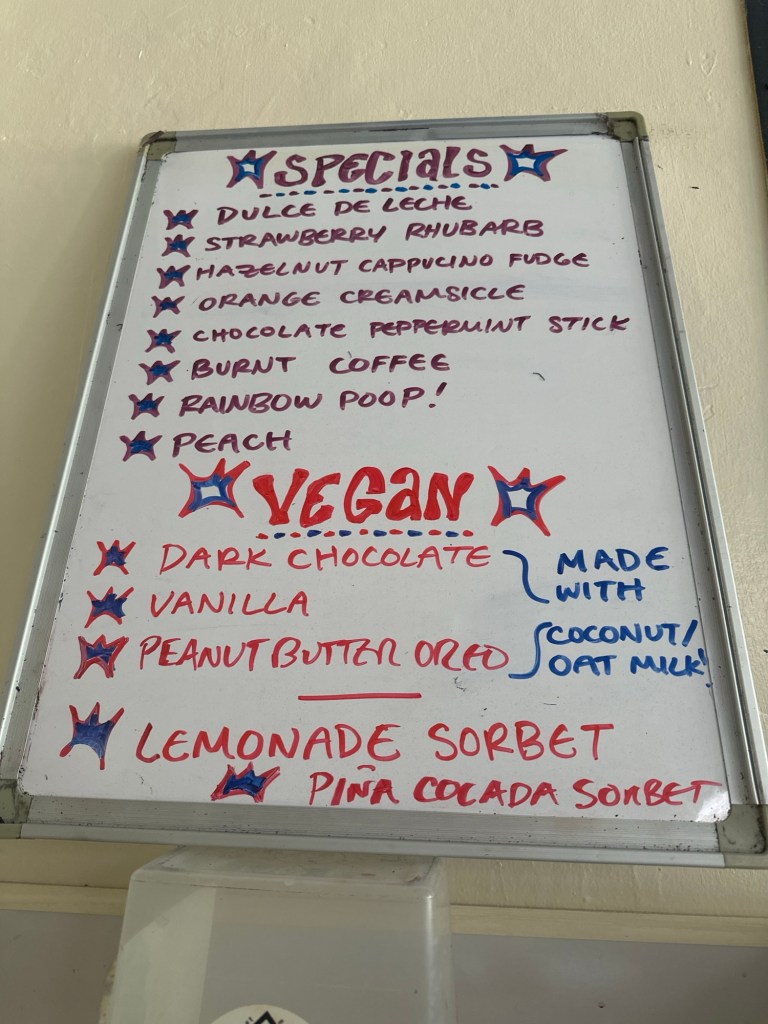 SPECIALS
DULCE DE LECHE
STRAWBERRY RHUBARB
HAZELNUT CAPPUCINO FUDGE
ORANGE CREAMSICLE
CHOCOLATE PEPPERMINT STICK
BURNT COFFEE
RAINBOW POOP!
PEACH
VEGAN
DARK CHOCOLATE
VANILLA
PEANUT BUTTER OREO
MADE
WITH
COCONUT/
OAT MILK!
LEMONADE SORBET
PIÑA COLADA SORBET